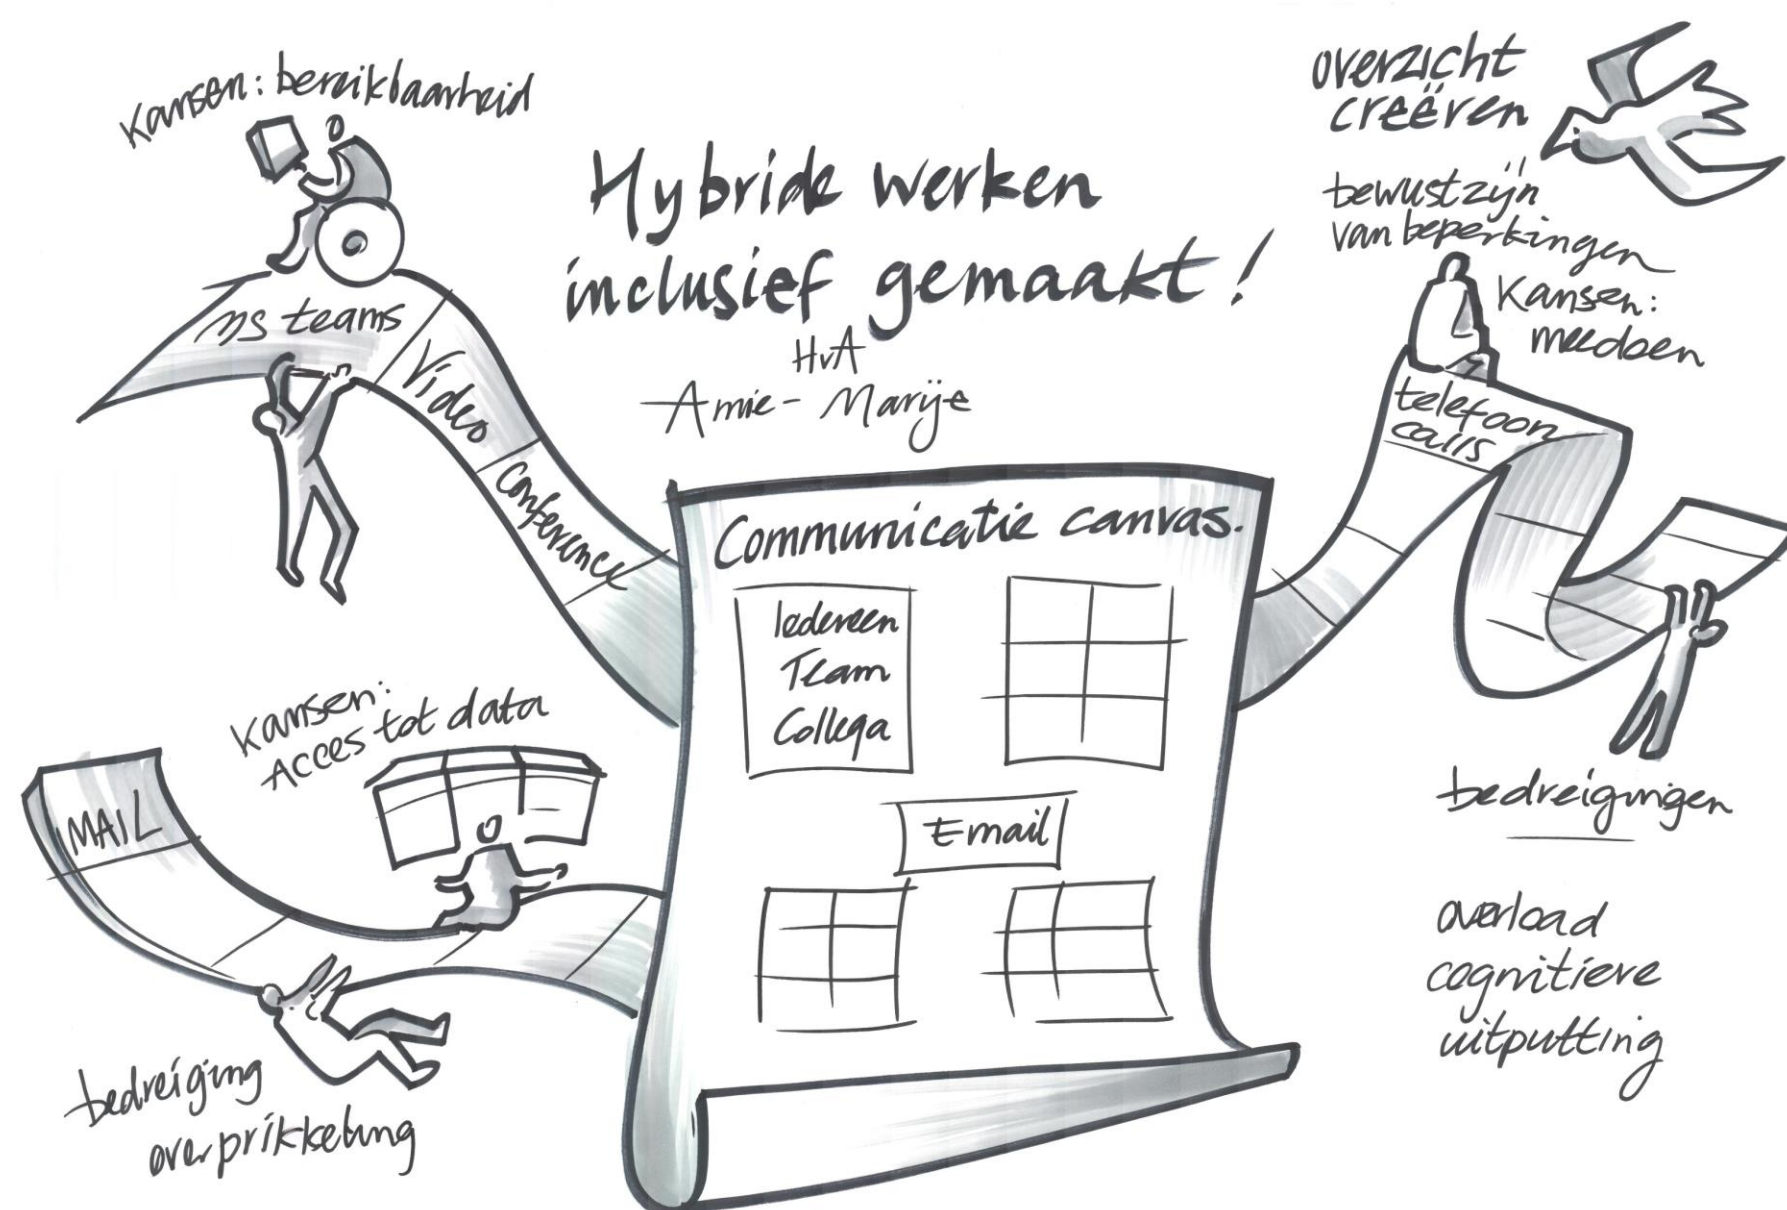 Kansen: bereikbaarheid
Hybride werken
inclusief gemaakt!
HvA
Amie - Marije
overzicht
creëren
bewustzijn
van beperkingen
Kansen:
meedoen
ms teams
Video
Conference
telefoon
calls
Communicatie canvas.
Iedereen
Team
Collega
Email
Kansen:
Acces tot data
MAIL
bedreiging
overprikkeling
bedreigingen
overload
cognitieve
uitputting